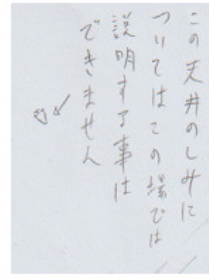 この天井のしみに
ついてはこの場では
説明する事は
できません